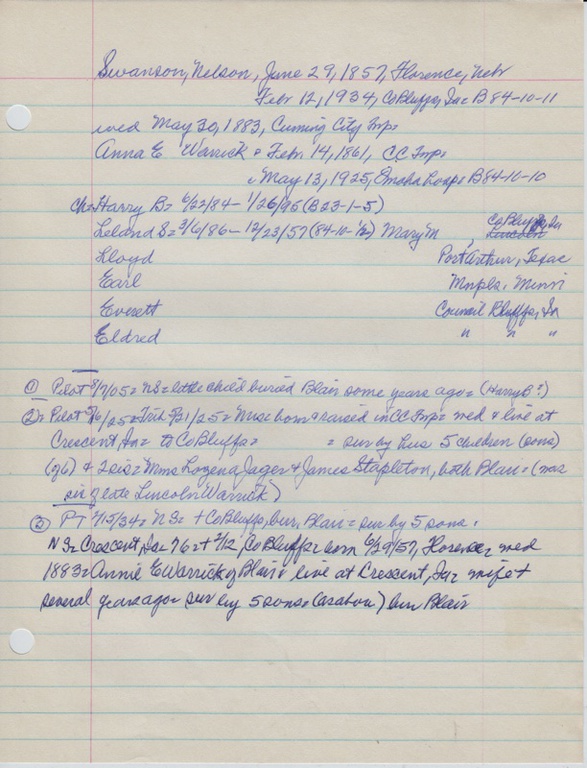 Swanson, Nelson, June 29, 1857, Florence, Nebr
Febr 12, 1934, Co Bluffs, Ia = B 84-10-11
wed May 30, 1883, Cuming City Twp =
Anna E Warrick = Febr 14, 1861, C.C. Twp =
May 13, 1925, Omaha B 84-10-10
Ch = Harry B = 6/22/84 - 1/26/95 (B 23-1-5)
Leland S = 3/6/86 - 12/23/57 (84-10-1/2) Mary M , Co Bluffs, Ia
Lloyd Port Arthur, Texas
Earl Mnpls, Minn
Everett Council Bluffs, Ia
Eldred " " "
① Pilot 8/9/05 = NS = late child buried Blair some years ago = (Harry B?)
② = Pilot /25 = Trib 5/21/25 = Mrs = born & raised in CC Twp = wed & live at
Crescent, Ia = to Co Bluffs = = sur by hus 5 children (sons)
(of 6) + 2 sis = Mms Lozena Jager & James Stapleton, both Blair = (was
sis of late Lincoln Warrick)
③ PT 2/15/34 = NS = + Co Bluffs, bur, Blair = sur by 5 sons .
NS = Crescent, Ia = 76 = + 2/12, Co Bluffs = born 6/29/57, Florence = wed
1883 = Annie E Warrick of Blair & live at Crescent, Ia = wife +
several years ago = sur by 5 sons = (as above) bur Blair